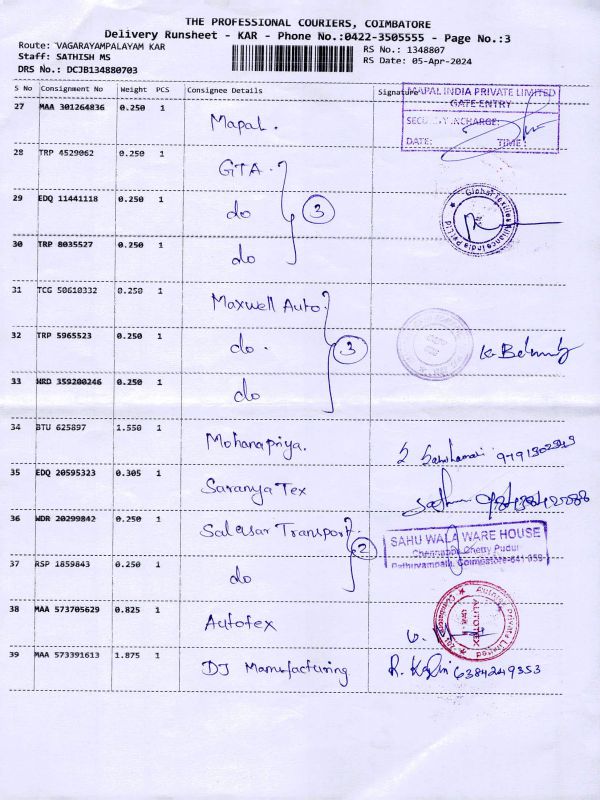 THE PROFESSIONAL COURIERS, COIMBATORE
Delivery Runsheet - KAR - Phone No.:0422-3505555 - Page No.:3
Route: VAGARAYAMPALAYAM KAR
RS No.: 1348807
Staff: SATHISH MS
RS Date: 05-Apr-2024
DRS No.: DCJB134880703
S No Consignment No Weight PCS Consignee Details Signature
MAPAL INDIA PRIVATE LIMITED
GATE ENTRY
27 MAA 301264836 0.250 1 Mapal.
DATE: TIME:
28 TRP 4529062 0.250 1 GTA.
29 EDQ 11441118 0.250 1 do 3
30 TRP 8035527 0.250 1 do
31 TCG 50610332 0.250 1 Maxwell Auto
32 TRP 5965523 0.250 1 do. 3
33 NRD 359200246 0.250 1 do
34 BTU 625897 1.550 1 Mohanapriya.
35 EDQ 20595323 0.305 1 Saranya Tex
36 WDR 20299842 0.250 1 Salasar Transport 2
SAHU WALA WARE HOUSE
Chennappa Chetty Pudur
37 RSP 1859843 0.250 1 do
38 MAA 573705629 0.825 1 Autotex
AUTOTEX
39 MAA 573391613 1.875 1 DJ Manufacturing R. 6384249353